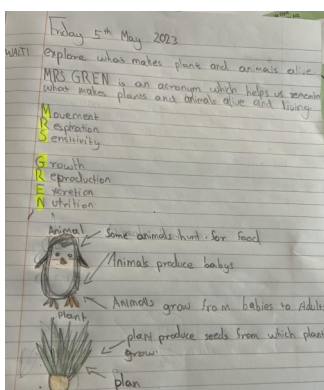 Friday 5th May 2023
WALT: explore what makes plant and animals alive
MRS GREN is an acronym which helps us
what makes plants and animals alive and living.
Movement
Respration
Sensitivity
Growth
Reproduction
Excretion
Nutrition
Animal
Some animals hunt for food
Animals produce babys
Animals grow from babies to Adult
Plant
plant produce seeds from which plant
grow.
plan